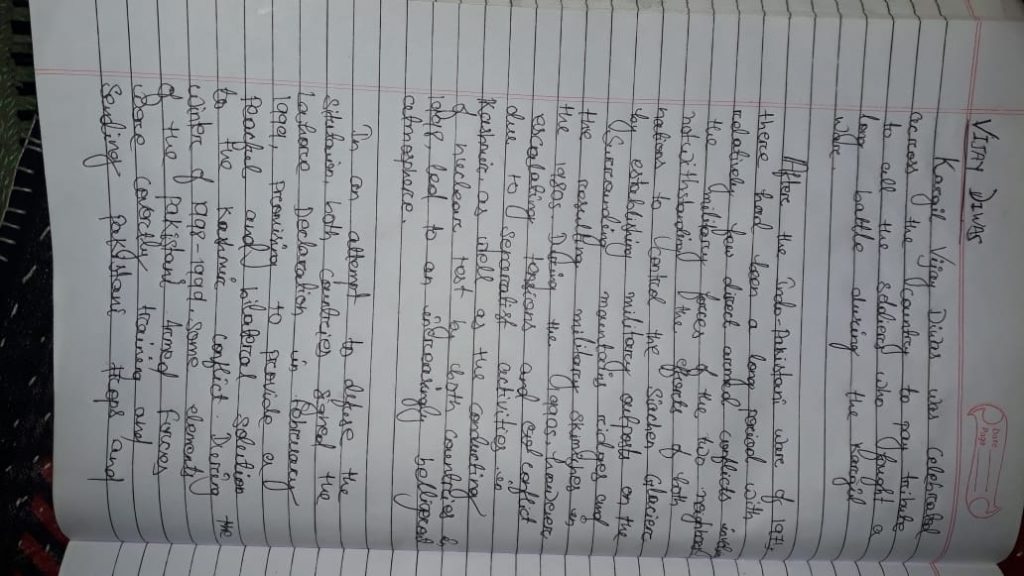 Date
Page
VIJAY DIWAS
Kargil Vijay Diwas was celebrated
across the country to pay tribute
to all the soldiers who fought a
long battle during the Kargil
War.
After the Indo-Pakistani ware of 1971,
there had been a long period with
relatively few direct armed conflicts
the military forces of the two
notwithstanding the efforts of both
nations to control the Siachen Glacier
by establishing military outposts on the
surrounding mountains ridges and
the resulting military skirmishes in
the 1980s. During the 1990s, however
escalating tensions and conflict
due to separatist activities in
Kashmir as well as the conducting
of nuclear test by both countries
1998, led to an increasingly
atmosphere.
In an attempt to defuse the
situation, both countries signed the
Lahore Declaration in February
1999, promising to provide a
peaceful and bilateral solution
to the Kashmir conflict. During the
winter of 1998-1999, some elements
of the Pakistani Armed Forces
were covertly training and
sending Pakistani troops and